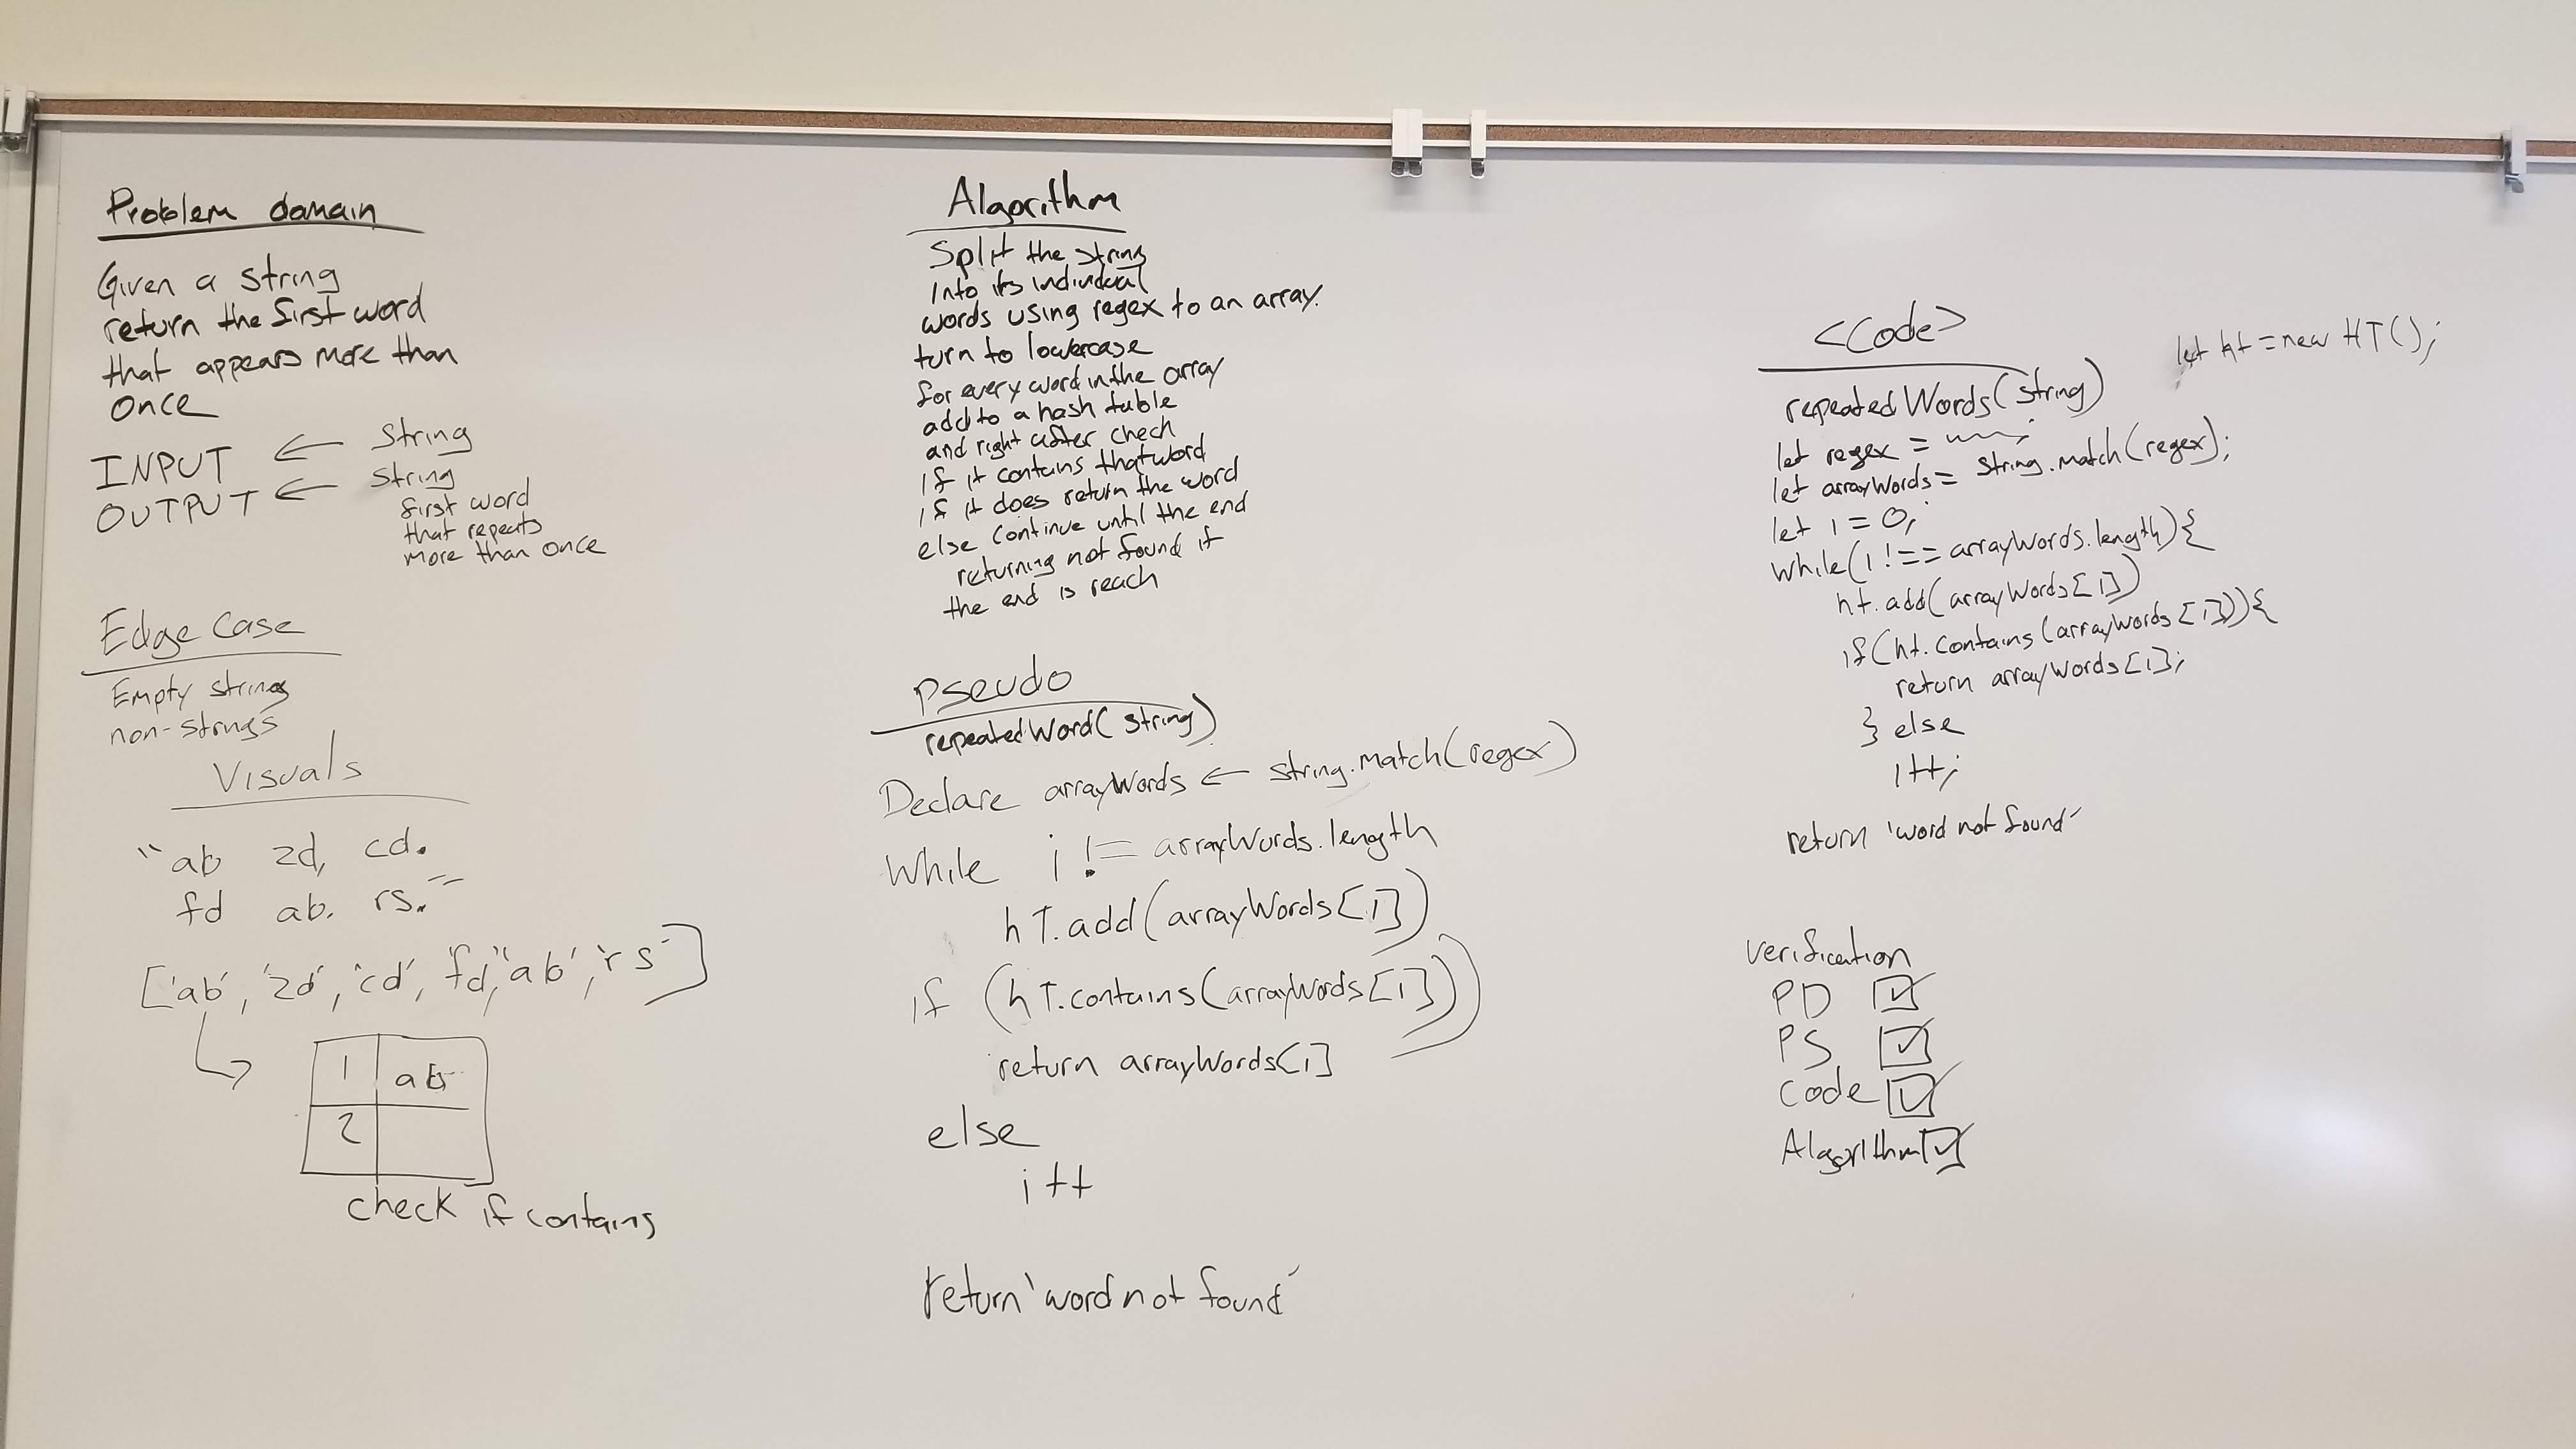 Problem domain
Given a string
return the first word
that appears more than
once
INPUT ← String
OUTPUT ← String
first word
that repeats
more than once
Edge Case
Empty strings
non-strings
Visuals
"ab zd, cd.
fd ab. rs."
['ab', 'zd', 'cd', 'fd', 'ab', 'rs']
1 ab
2
check if contains
Algorithm
Split the string
into its individual
words using regex to an array.
turn to lowercase
for every word in the array
add to a hash table
and right after check
if it contains that word
if it does return the word
else continue until the end
returning not found if
the end is reach
Pseudo
repeatedWord(string)
Declare arrayWords ← string.match(regex)
While i != arrayWords.length
hT.add(arrayWords[i])
if (hT.contains(arrayWords[i]))
return arrayWords[i]
else
i++
return 'word not found'
<Code>
let ht = new HT();
repeatedWords(string)
let regex = ;
let arrayWords = String.match(regex);
let i = 0;
while(i !== arrayWords.length){
ht.add(arrayWords[i])
if(ht.contains(arrayWords[i])){
return arrayWords[i];
} else
i++;
return 'word not found'
verification
PD ☑
PS ☑
Code ☑
Algorithm ☑